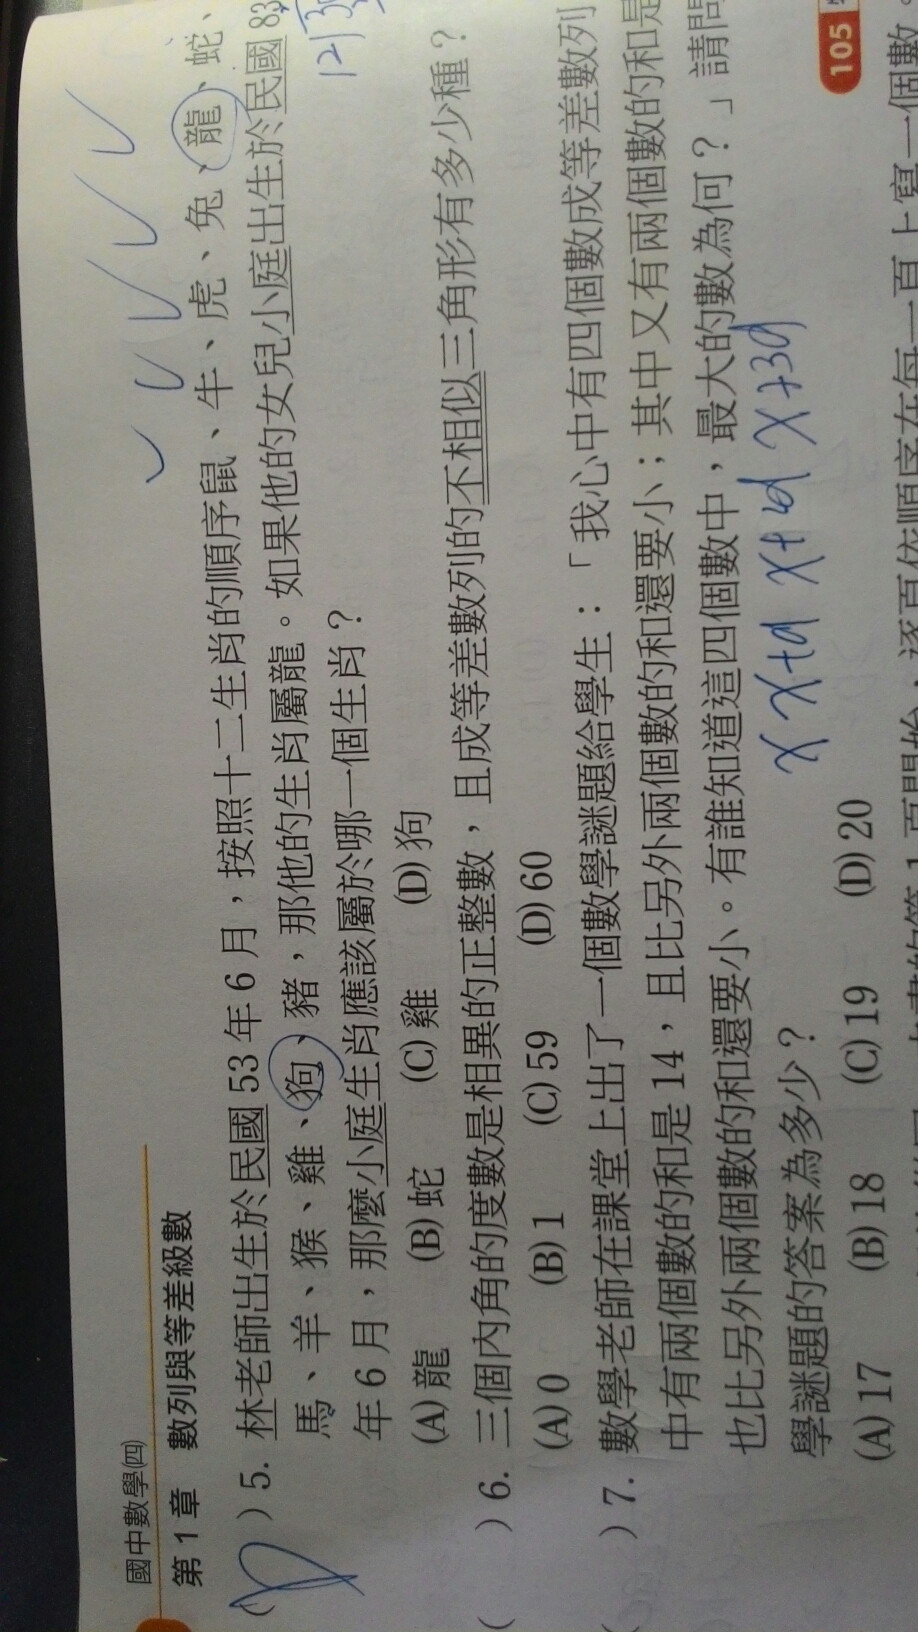 國中數學(四)
第 1 章 數列與等差級數
( D ) 5. 林老師出生於民國 53 年 6 月，按照十二生肖的順序鼠、牛、虎、兔、龍、蛇、
馬、羊、猴、雞、狗、豬，那他的生肖屬龍。如果他的女兒小庭出生於民國 83
年 6 月，那麼小庭生肖應該屬於哪一個生肖？
12
(A) 龍 (B) 蛇 (C) 雞 (D) 狗
( ) 6. 三個內角的度數是相異的正整數，且成等差數列的不相似三角形有多少種？
(A) 0 (B) 1 (C) 59 (D) 60
( ) 7. 數學老師在課堂上出了一個數學謎題給學生：「我心中有四個數成等差數列
中有兩個數的和是 14，且比另外兩個數的和還要小；其中又有兩個數的和是
也比另外兩個數的和還要小。有誰知道這四個數中，最大的數為何？」請問
學謎題的答案為多少？
x x+d x+2d x+3d
(A) 17 (B) 18 (C) 19 (D) 20
105